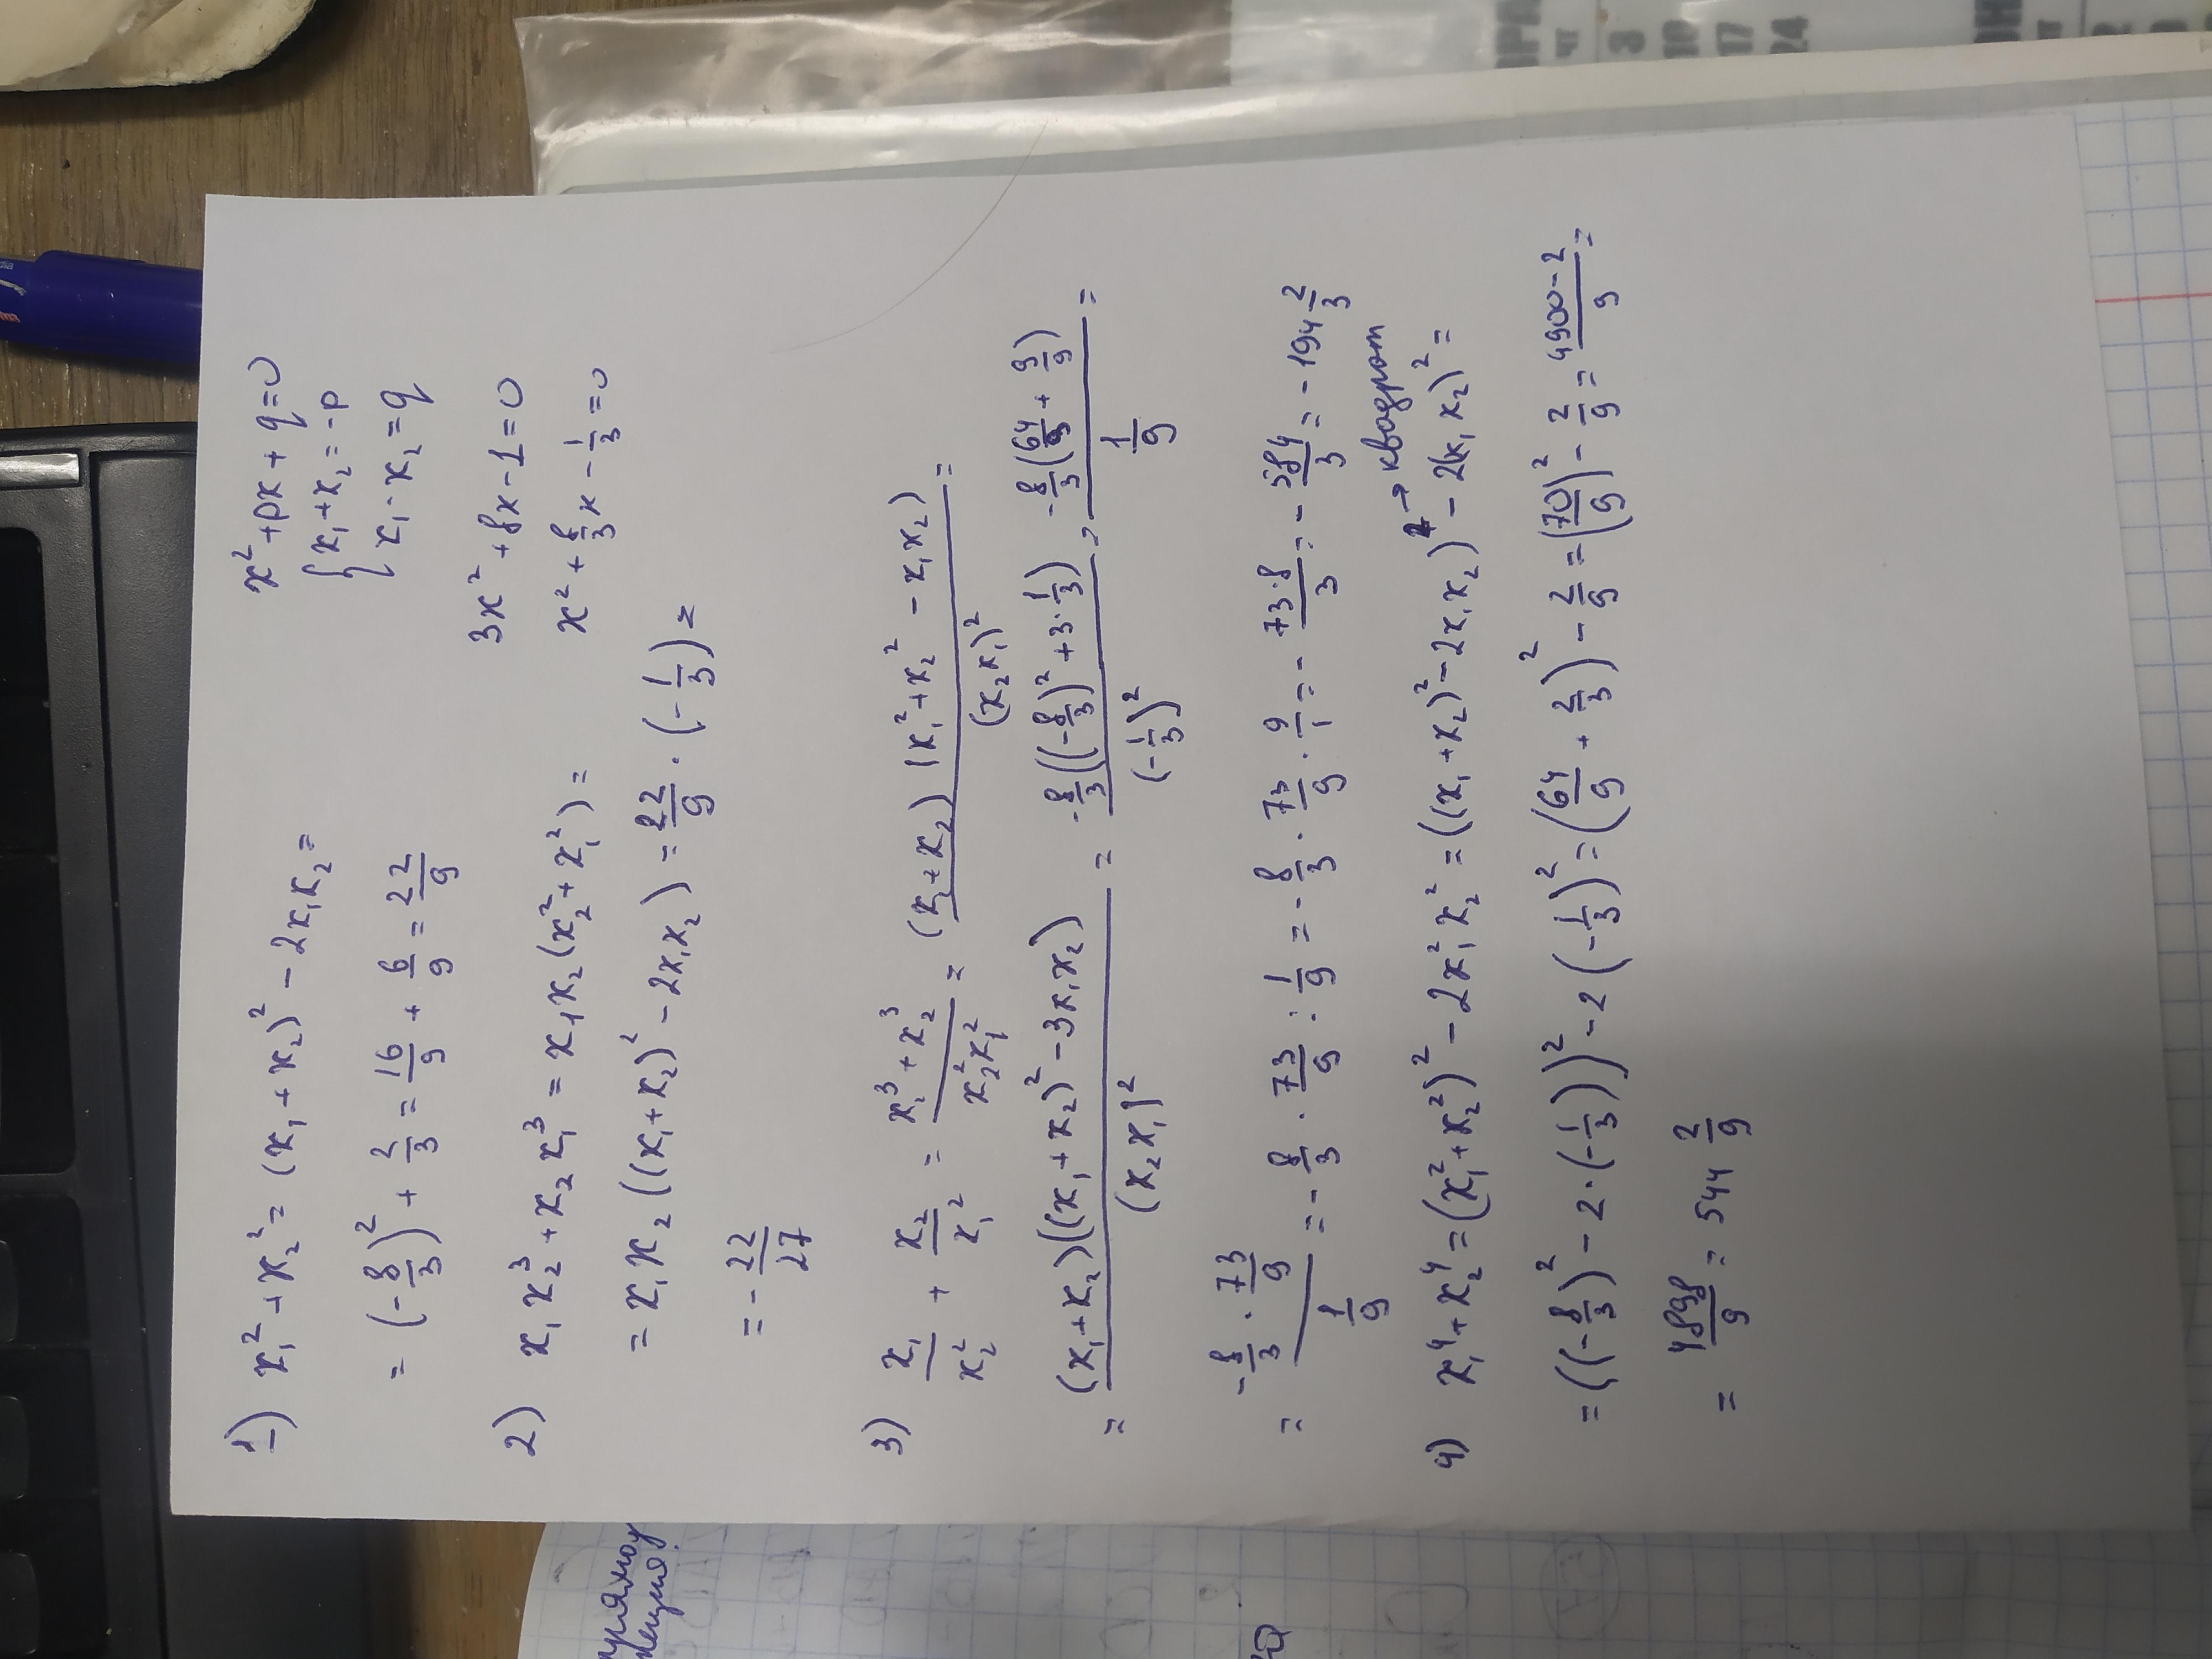 x² + px + q = 0
{ x₁ + x₂ = -p
x₁ · x₂ = q
1) x₁² + x₂² = (x₁ + x₂)² - 2x₁x₂ =
= (-8/3)² + 2/3 = 16/9 + 6/9 = 22/9
3x² + 8x - 1 = 0
x² + 8/3 x - 1/3 = 0
2) x₁x₂³ + x₂x₁³ = x₁x₂(x₂² + x₁²) =
= x₁x₂((x₁ + x₂)² - 2x₁x₂) = 22/9 · (-1/3) =
= - 22/27
3) x₁/x₂² + x₂/x₁² = (x₁³ + x₂³)/(x₂²x₁²) = (x₁ + x₂)(x₁² + x₂² - x₁x₂)/(x₂x₁)² =
= (x₁ + x₂)((x₁ + x₂)² - 3x₁x₂)/(x₂x₁)² = -8/3((-8/3)² + 3·1/3)/(-1/3)² = -8/3(64/9 + 9/9)/(1/9) =
= (-8/3 · 73/9)/(1/9) = -8/3 · 73/9 : 1/9 = -8/3 · 73/9 · 9/1 = - 73·8/3 = - 584/3 = -194 2/3
→ квадрат
4) x₁⁴ + x₂⁴ = (x₁² + x₂²)² - 2x₁²x₂² = ((x₁ + x₂)² - 2x₁x₂)² - 2(x₁x₂)² =
= ((-8/3)² - 2·(-1/3))² - 2(-1/3)² = (64/9 + 2/3)² - 2/9 = (70/9)² - 2/9 = 4900-2/9 =
= 4898/9 = 544 2/9
прямоу
3
10
17
24
чт